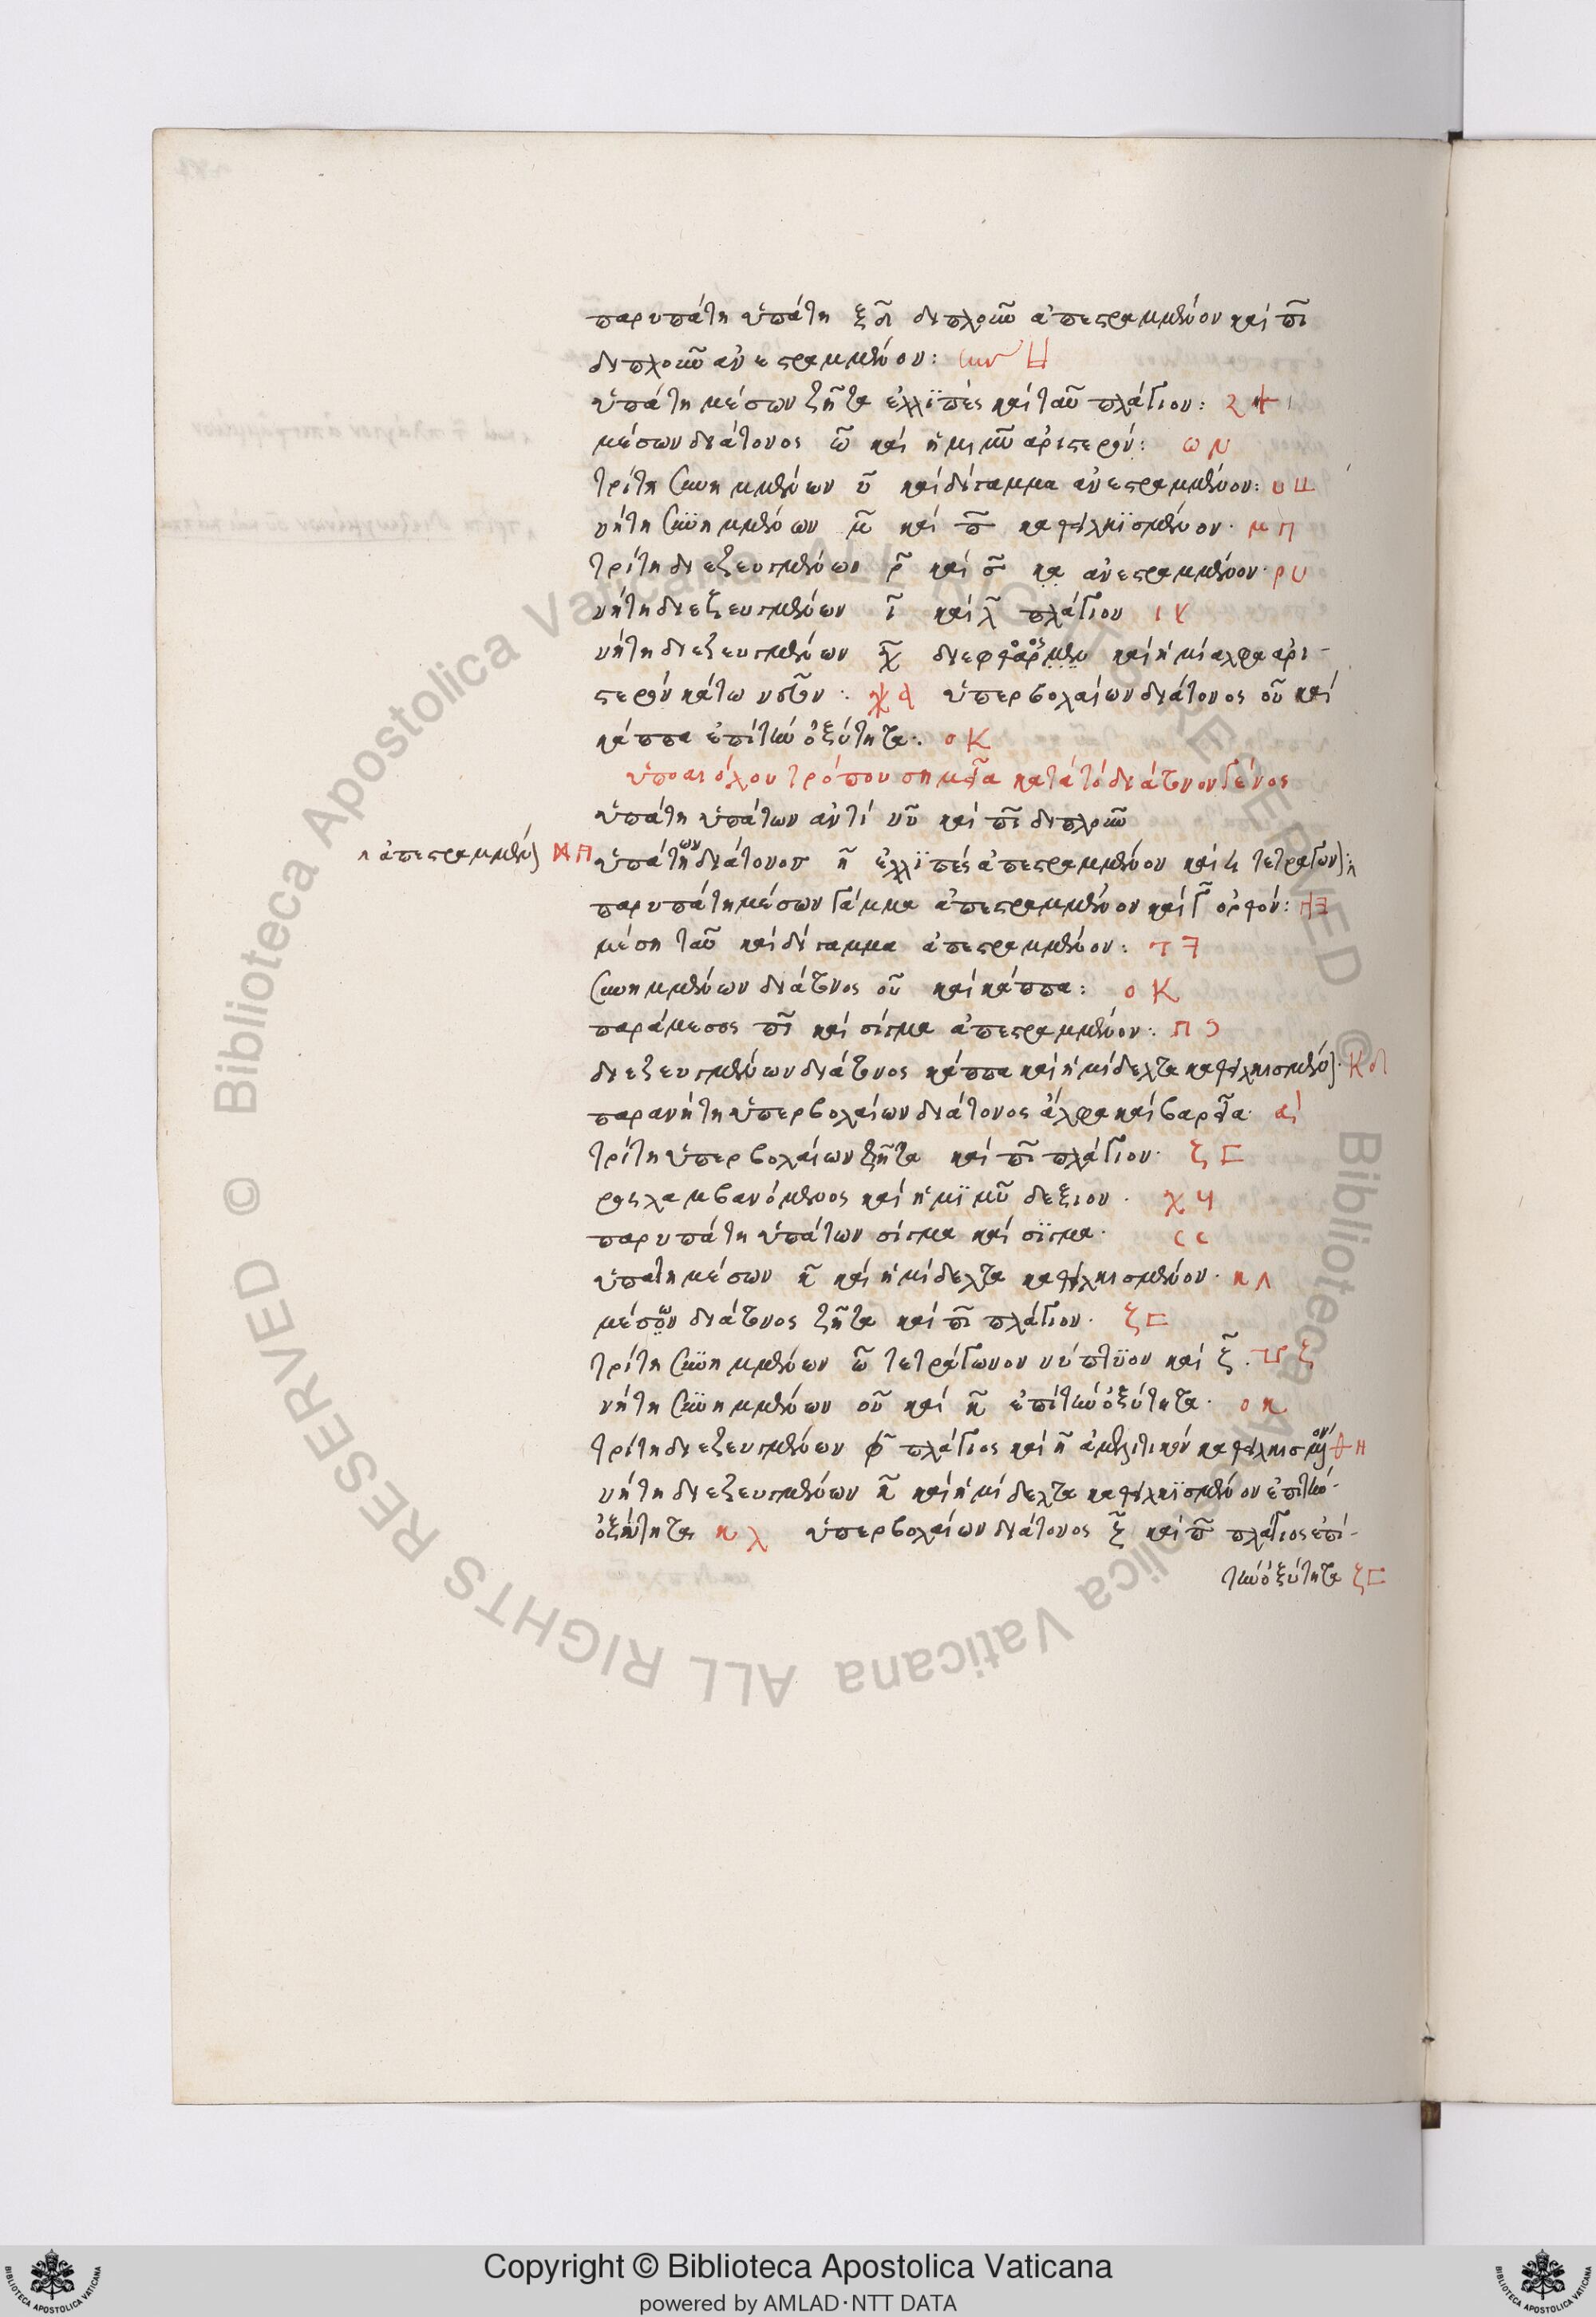 παρυπάτη ὑπάτη ξ διπλοῦν ἀπεστραμμένον καὶ πῖ
διπλοῦν ἀνεστραμμένον:
ὑπάτη μέσων ζῆτα ἐλλϊπὲς καὶ ταῦ πλάγιον:
μέσων διάτονος ω̃ καὶ ἥμι μῦ ἀριστερόν: ω
τρίτη συνημμένων υ̃ καὶ δίγαμμα ἀνεστραμμένον: υ
νήτη συνημμένων μ̃ καὶ π̃ καθειλκϊσμένον· μ π
τρίτη διεζευγμένων ρ̃ καὶ σ̃ κα ἀνεστραμμένον· ρ υ
νήτη διεζευγμένων ῖ καὶ λ̃ πλάγιον ι
νήτη διεζευγμένων χ̃ διεφθορὸς καὶ ἥμι αλφα ἀρι-
στερὸν κάτω νεῦον: ὑπερβολαίων διάτονος οὖ καὶ
κάππα ἐπὶ τὴν ὀξύτητα: ο Κ
ὑποαιόλου τρόπου σημεῖα κατὰ τὸ διάτονον γένος
ὑπάτη ὑπάτων ἀντὶ νῦ καὶ πῖ διπλοῦν
ἀπεστραμμένον ὑπάτων διάτονος η̃ ἐλλϊπὲς ἀπεστραμμένον καὶ τετράγων
παρυπάτη μέσων γάμμα ἀπεστραμμένον καὶ γ̃ ὀρθόν:
μέση ταῦ καὶ δίγαμμα ἀπεστραμμένον:
συνημμένων διάτονος οὖ καὶ κάππα: ο Κ
παράμεσος πῖ καὶ σίγμα ἀπεστραμμένον: π Ͻ
διεζευγμένων διάτονος κάππα καὶ ἥμι δελτα καθειλκισμένον· Κ
παρανήτη ὑπερβολαίων διάτονος ἄλφα καὶ βαρεῖα·
τρίτη ὑπερβολαίων ζῆτα καὶ πῖ πλάγιον· ζ ⊏
προσλαμβανόμενος καὶ ἥμϊ μῦ δεξιον· χ
παρυπάτη ὑπάτων σίγμα καὶ σϊγμα· c c
ὑπατη μέσων κ̃ καὶ ἥμι δελτα καθειλκισμένον· κ
μέσων διάτονος ζῆτα καὶ πῖ πλάγιον· ζ ⊏
τρίτη συνημμένων ω̃ τετράγωνον ὑπτϊον καὶ ξ̃·
νήτη συνημμένων οὖ καὶ κ̃ ἐπὶ τὴν ὀξύτητα· ο κ
τρίτη διεζευγμένων φ̃ πλάγιος καὶ η̃ ἀμελητικὸν καθειλκισμένον
νήτη διεζευγμένων κ̃ καὶ ἥμι δελτα καθειλκϊσμένον ἐπὶ τὴν
ὀξύτητα κ λ ὑπερβολαίων διάτονος ξ̃ καὶ π̃ πλάγιος ἐπὶ
τὴν ὀξύτητα ζ ⊏
© Biblioteca Apostolica Vaticana ALL RIGHTS RESERVED © Biblioteca Apostolica Vaticana ALL RIGHTS RESERVED
Copyright © Biblioteca Apostolica Vaticana
powered by AMLAD·NTT DATA